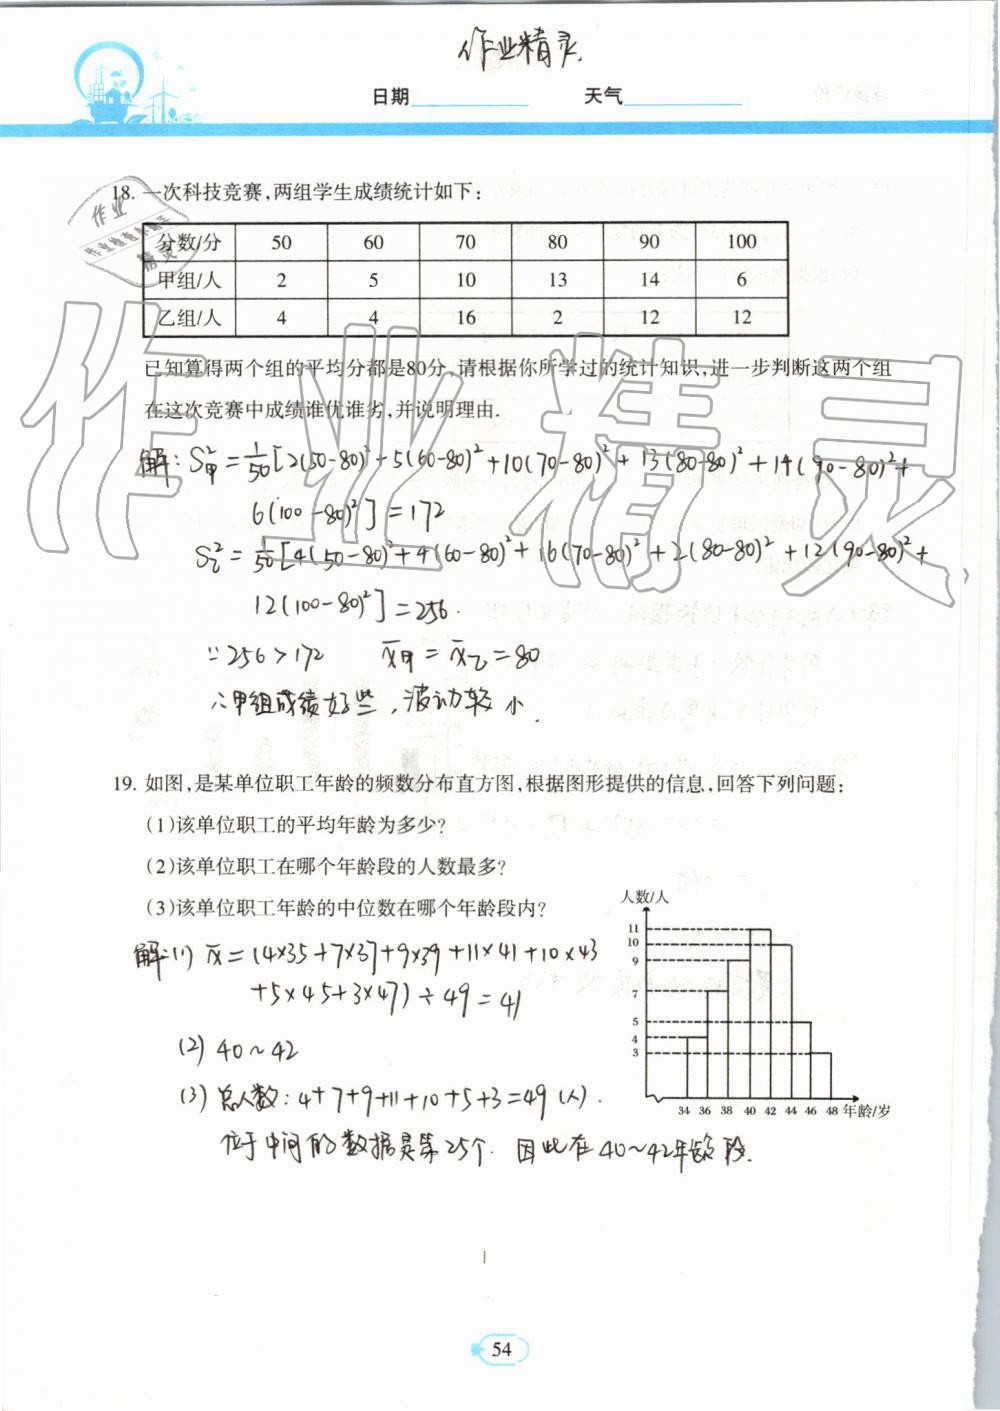 作业精灵.
日期 天气
18. 一次科技竞赛,两组学生成绩统计如下:
分数/分 50 60 70 80 90 100
甲组/人 2 5 10 13 14 6
乙组/人 4 4 16 2 12 12
已知算得两个组的平均分都是80分,请根据你所学过的统计知识,进一步判断这两个组
在这次竞赛中成绩谁优谁劣,并说明理由.
解: S²甲 = 1/50[2(50-80)²+5(60-80)²+10(70-80)²+13(80-80)²+14(90-80)²+
6(100-80)²]=172
S²乙 = 1/50[4(50-80)²+4(60-80)²+16(70-80)²+2(80-80)²+12(90-80)²+
12(100-80)²]=256.
∵256>172 x̄甲=x̄乙=80
∴甲组成绩好些,波动较小.
19. 如图,是某单位职工年龄的频数分布直方图,根据图形提供的信息,回答下列问题:
(1)该单位职工的平均年龄为多少?
(2)该单位职工在哪个年龄段的人数最多?
(3)该单位职工年龄的中位数在哪个年龄段内?
解:(1) x̄=(4×35+7×37+9×39+11×41+10×43
+5×45+3×47)÷49=41
(2) 40~42
(3) 总人数:4+7+9+11+10+5+3=49(人).
位于中间的数据是第25个. 因此在40~42年龄段.
人数/人
11
10
9
7
5
4
3
34 36 38 40 42 44 46 48 年龄/岁
54
作业
精灵
作业精灵